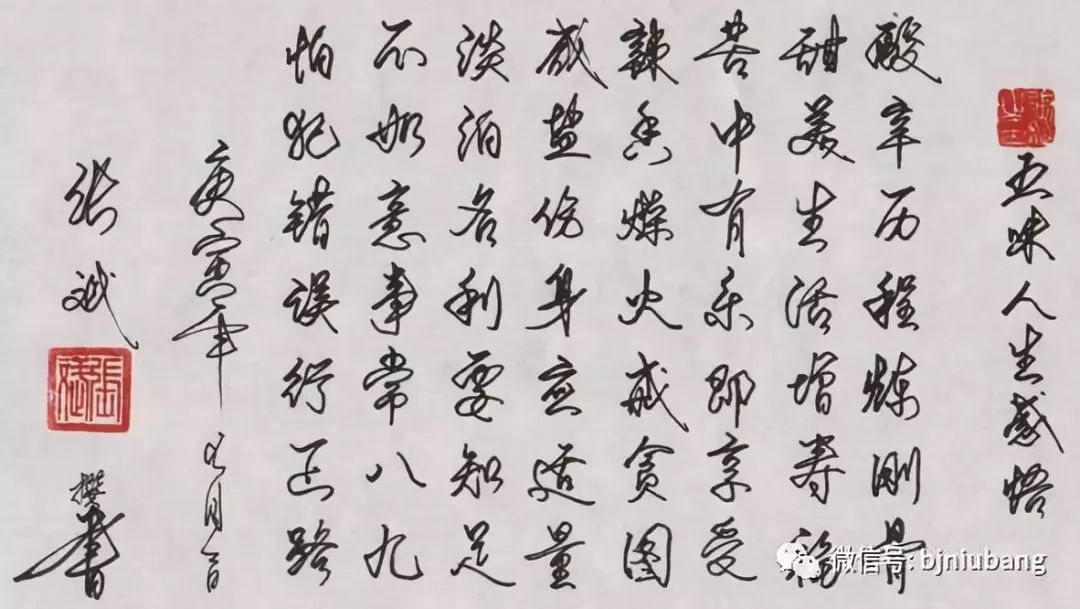 五味人生感悟
酸辛历程炼刚骨
甜美生活增寿福
苦中有乐即享受
辣香燥火戒贪图
咸盐伤身应适量
淡泊名利要知足
不如意事常八九
怕犯错误行正路
庚寅年月
张斌
张斌
撰书
微信号: bjniubang